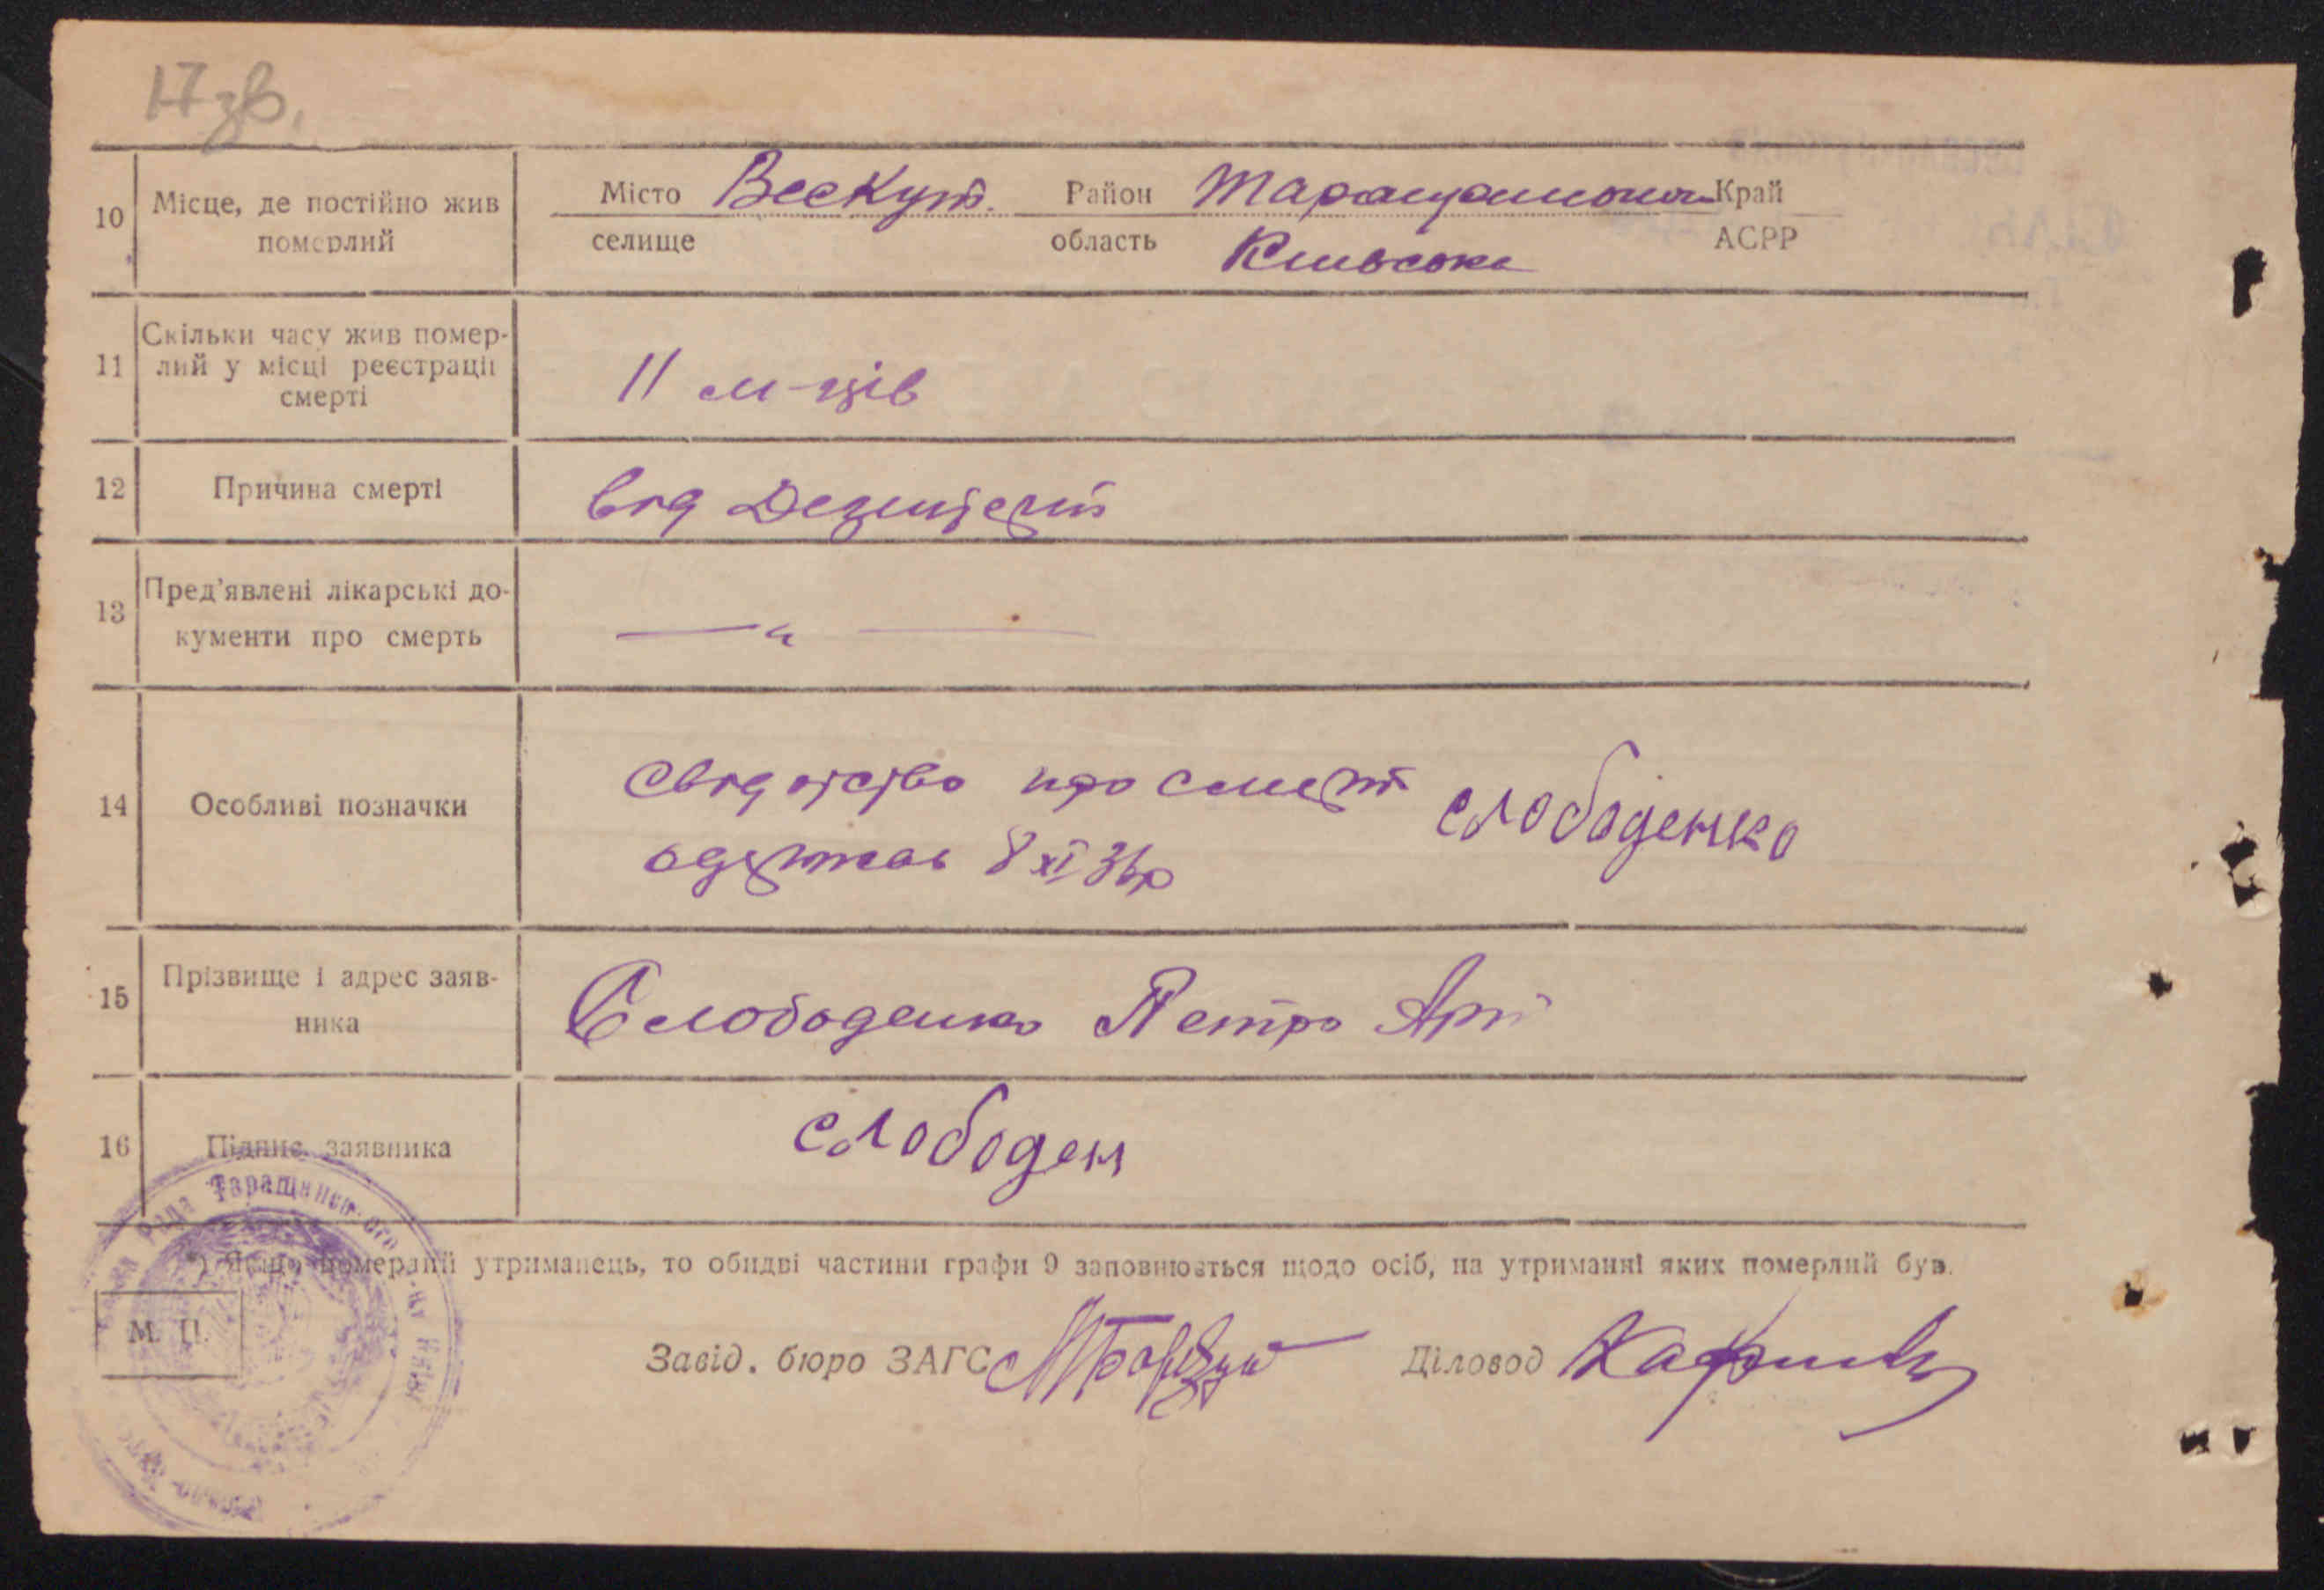 17 зв.
10 Місце, де постійно жив померлий
Місто селище ВесКут. Район область Таращанський Київська Край АСРР
11 Скільки часу жив помер-
лий у місці реєстрації
смерті
11 м-ців
12 Причина смерті
від Дезинтерії
13 Пред'явлені лікарські до-
кументи про смерть
—„—
14 Особливі позначки
свідотство про смерт слободенко
одержав 8 XI 36р
15 Прізвище і адрес заяв-
ника
Слободенко Петро Арт
16 Підпис заявника
слободен
*) Якщо померлий утриманець, то обидві частини графи 9 заповнюється щодо осіб, на утриманні яких померлий був.
М. П.
Рада Таращанського
Завід. бюро ЗАГС
Діловод